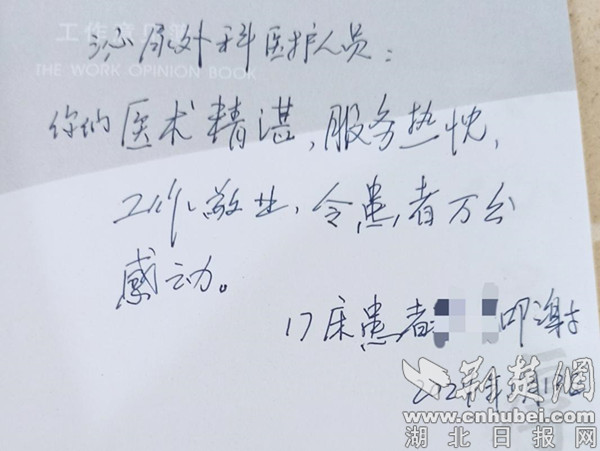 工作意见簿
THE WORK OPINION BOOK
泌尿外科医护人员：
你们医术精湛，服务热忱，
工作敬业，令患者万分
感动。
17床患者 叩谢
荆楚网
www.cnhubei.com
湖北日报网